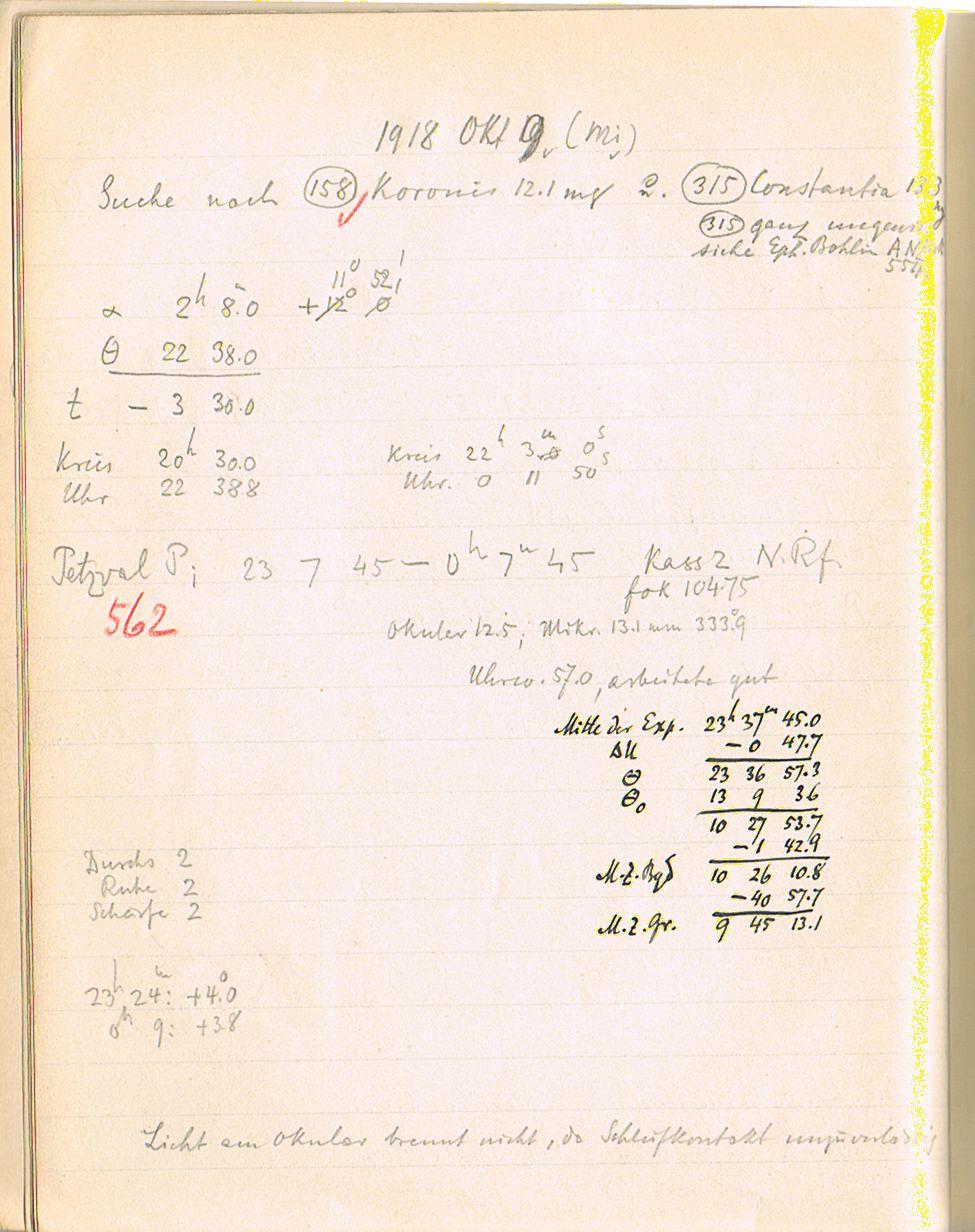 1918 Okt 9. (Mi)
Suche nach (158) Koronis 12.1 mg u. (315) Constantia 13.3
(315) ganz
siehe Eph. Bohlin AN
554
11° 52'
α 2h 8.0 +12° 0
Θ 22 38.0
t – 3 30.0
Kreis 20h 30.0 Kreis 22h 3m 0s
Uhr 22 38.8 Uhr. 0 11 50s
Petzval P; 23 7 45 – 0h 7m 45 Kass 2 N.Rf.
562 fok 104.75
Okular 12.5; Mikr. 13.1 mm 333.°9
Uhrw. 57.0, arbeitete gut
Mitte der Exp. 23h 37m 45.0
ΔU – 0 47.7
Θ 23 36 57.3
Θo 13 9 3.6
10 27 53.7
– 1 42.9
M.Z.Bgd 10 26 10.8
– 40 57.7
M.Z.Gr. 9 45 13.1
Durchs 2
Ruhe 2
Schärfe 2
23h 24m: +4.°0
0h 9: +3.8
Licht am Okular brennt nicht, da Schleifkontakt unzuverlässig